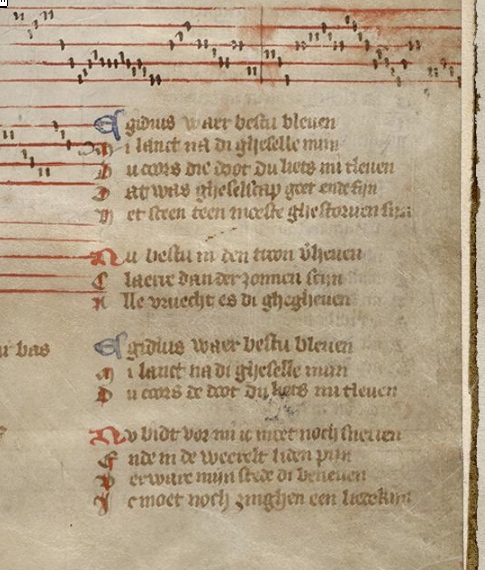 Egidius waer bestu bleuen
Mi lanct na di gheselle mijn
Du coors die doot du liets mi tleuen
Dat was gheselscap goet ende fijn
Het sceen teen moeste ghestoruen sijn
Nu bestu in den troon v'heuen
Claerre dan der zonnen scijn
Alle vruecht es di ghegheuen
bas
Egidius waer bestu bleuen
Mi lanct na di gheselle mijn
Du coors de doot du liets mi tleuen
Nv bidt vor mi ic moet noch sneuen
Ende in de weerelt liden pijn
Verware mijn stede di beneuen
Ic moet noch zinghen een liedekijn